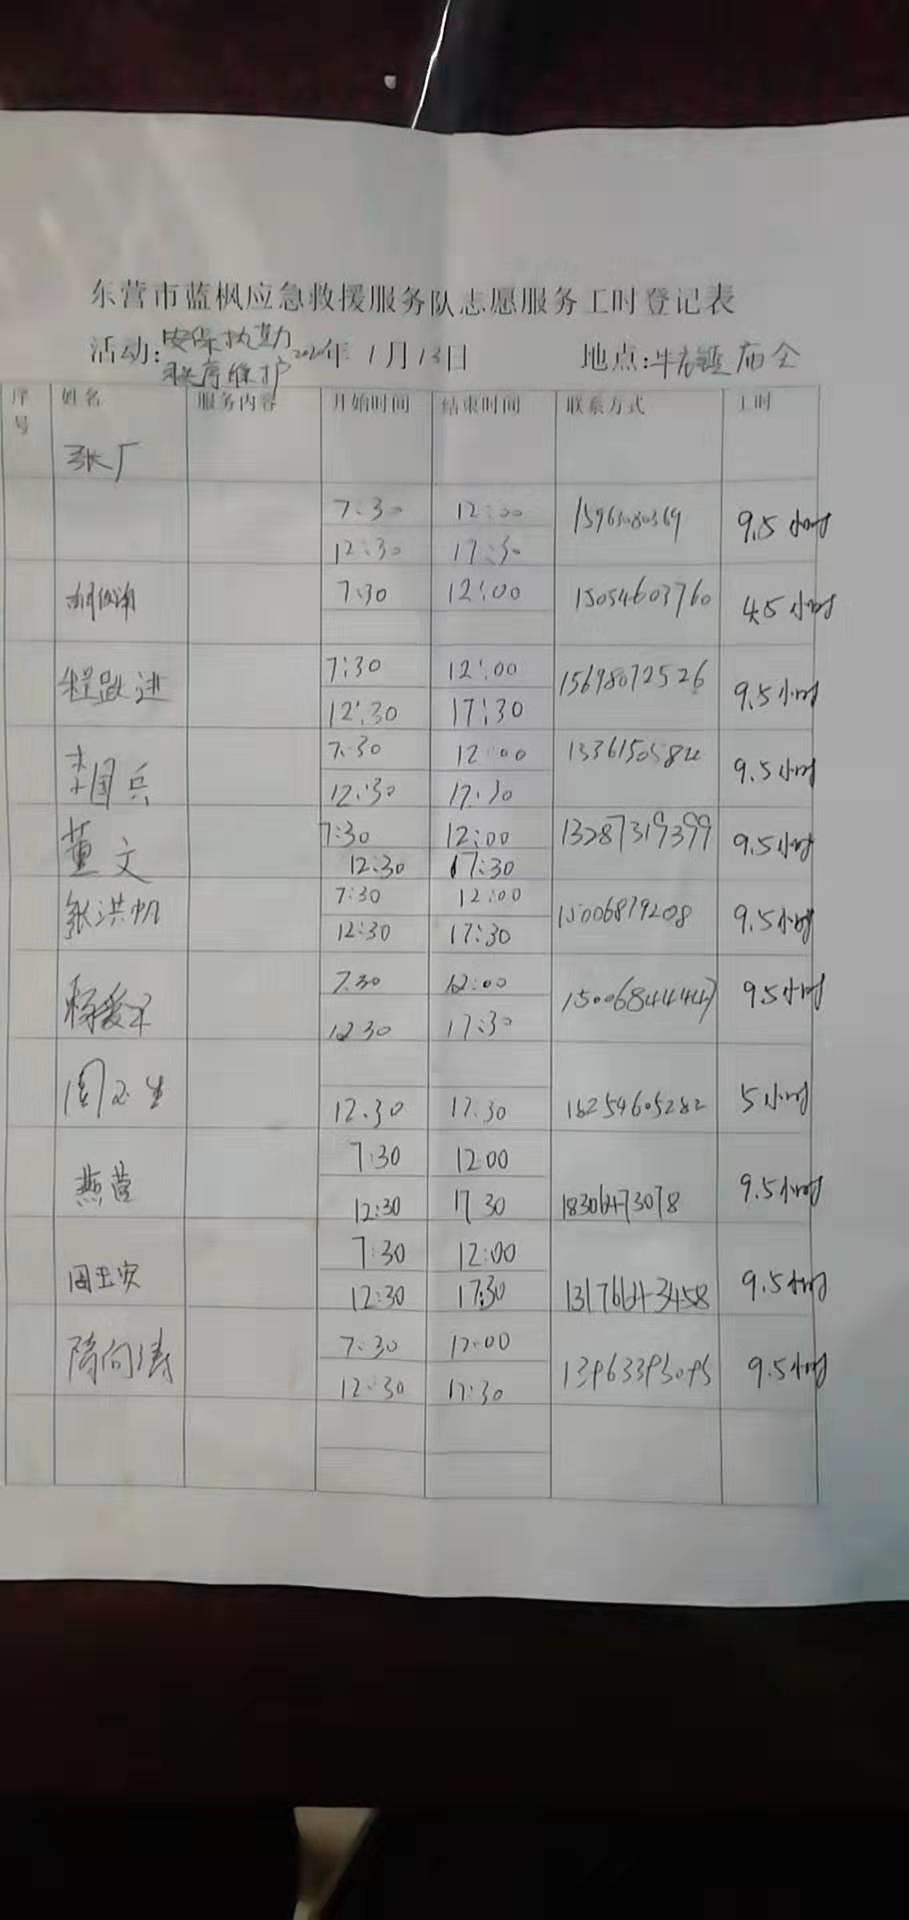 东营市蓝枫应急救援服务队志愿服务工时登记表
活动:安保执勤 2020年 1月13日 地点:牛庄镇庙会
秩序维护
序号 姓名 服务内容 开始时间 结束时间 联系方式 工时
张厂
7:30 12:00 9.5小时
12:30 17:30
7:30 12:00 15054603760 4.5小时
程跃进 7:30 12:00 15698072526 9.5小时
12:30 17:30
李国兵 7:30 12:00 9.5小时
12:30 17:30
董文 7:30 12:00 13287319399 9.5小时
12:30 17:30
张洪帆 7:30 12:00 15006879208 9.5小时
12:30 17:30
杨爱军 7.30 12:00 15006844447 9.5小时
12 30 17:30
周玉生
12.30 17.30 18254605282 5小时
燕营 7:30 12 00 9.5小时
12:30 17 30 18306473078
周玉安 7:30 12:00
12:30 17:30 13176643458 9.5小时
隋向涛 7:30 12:00 13963395095 9.5小时
12:30 17:30